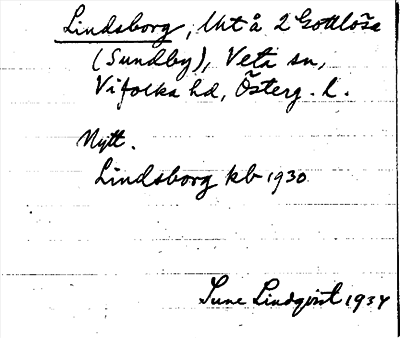 Lindsborg, lht å 2 Gottlösa
(Sundby), Veta sn,
Vifolka hd, Österg. l.
Nytt.
Lindsborg kb 1930
Sune Lindqvist 1934